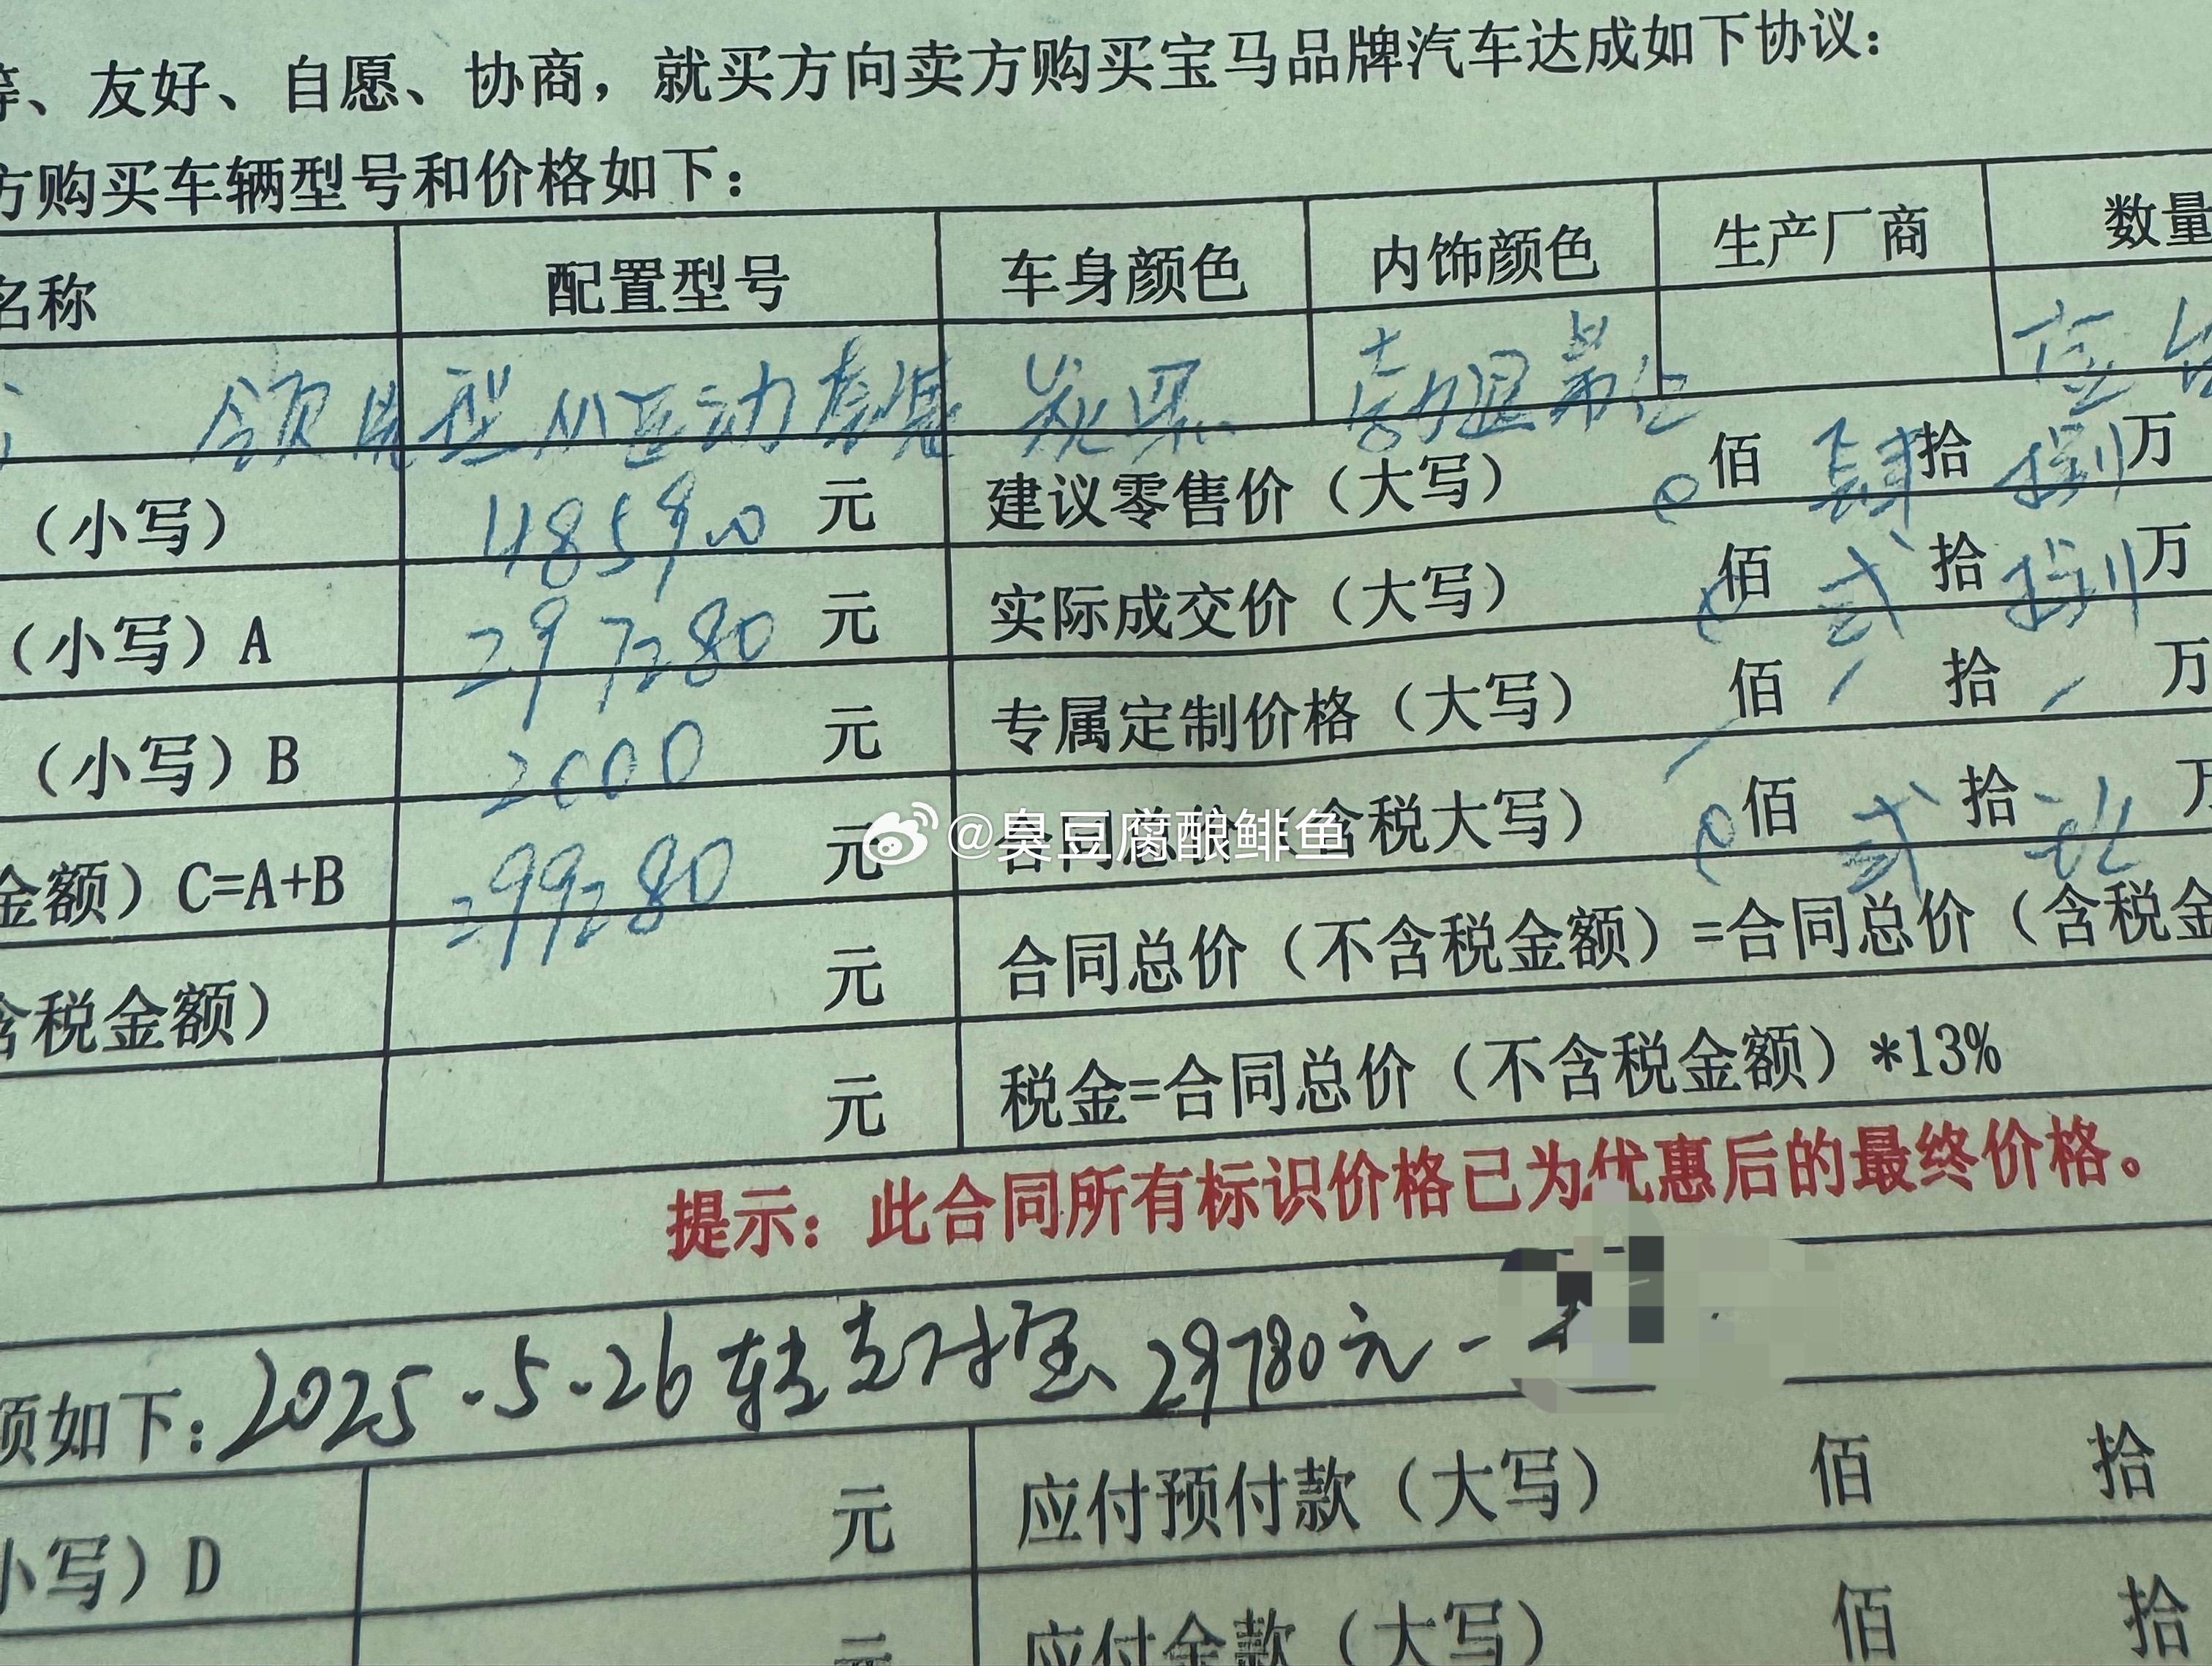 等、友好、自愿、协商，就买方向卖方购买宝马品牌汽车达成如下协议：
方购买车辆型号和价格如下：
名称 配置型号 车身颜色 内饰颜色 生产厂商 数量
领 型M运动套装
（小写） 元 建议零售价（大写） 佰 肆 拾 捌 万
（小写）A 297280 元 实际成交价（大写） 佰 贰 拾 捌 万
（小写）B 2000 元 专属定制价格（大写） 佰 / 拾 / 万
金额）C=A+B 299280 元 合同总价（含税大写） 佰 贰 拾 万
@臭豆腐酿鲱鱼
含税金额） 元 合同总价（不含税金额）=合同总价（含税金
元 税金=合同总价（不含税金额）*13%
提示：此合同所有标识价格已为优惠后的最终价格。
项如下：2025.5.26 转支付宝 29780元-
小写）D 元 应付预付款（大写） 佰 拾
元 应付余款（大写） 佰 拾